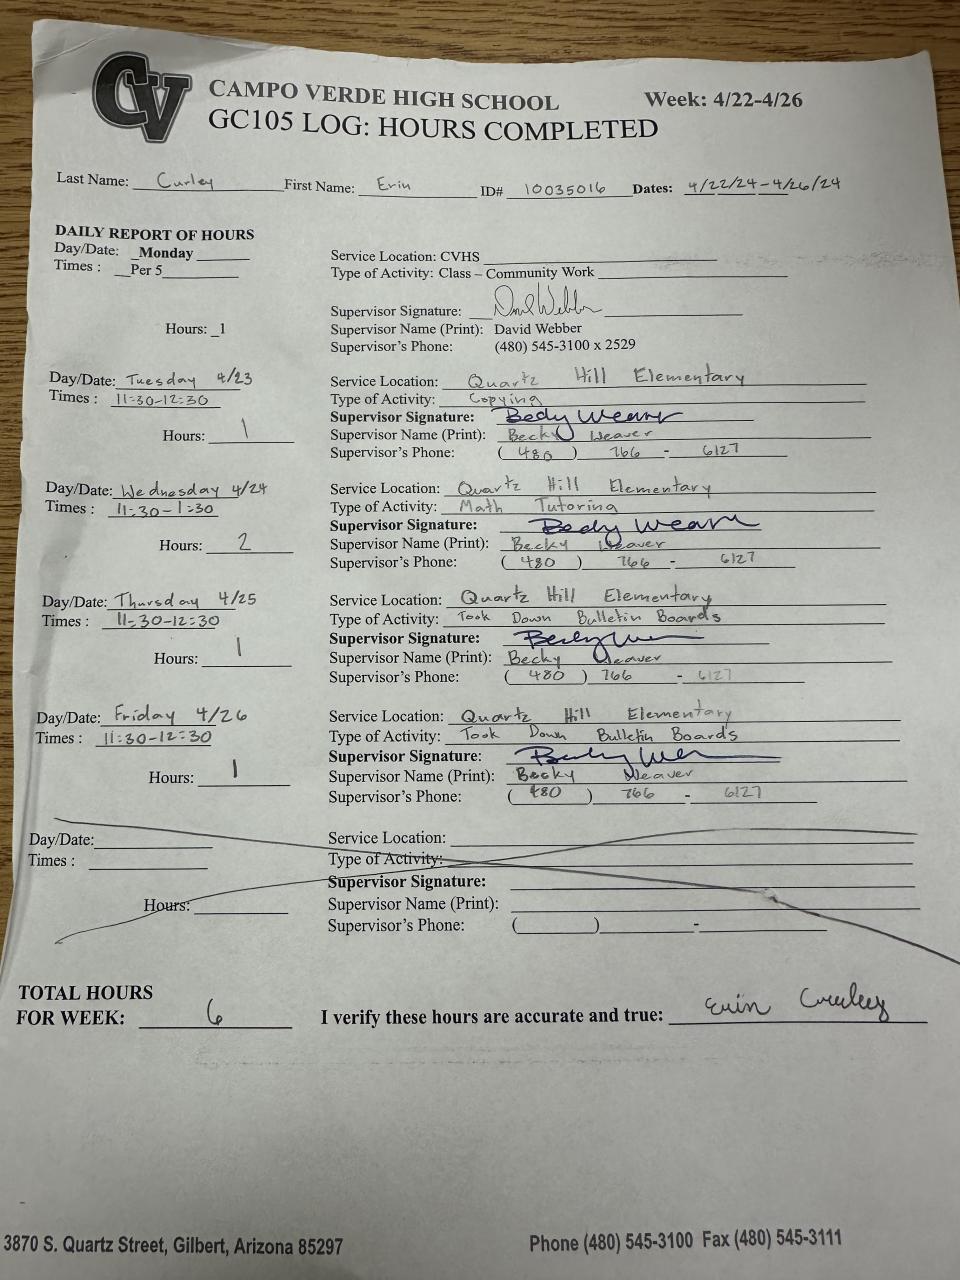 CV
CAMPO VERDE HIGH SCHOOL Week: 4/22-4/26
GC105 LOG: HOURS COMPLETED
Last Name: Curley First Name: Erin ID# 10035016 Dates: 4/22/24-4/26/24
DAILY REPORT OF HOURS
Day/Date: Monday Service Location: CVHS
Times : Per 5 Type of Activity: Class – Community Work
Supervisor Signature: David Webber
Hours: 1 Supervisor Name (Print): David Webber
Supervisor's Phone: (480) 545-3100 x 2529
Day/Date: Tuesday 4/23 Service Location: Quartz Hill Elementary
Times : 11:30-12:30 Type of Activity: Copying
Supervisor Signature: Becky Weaver
Hours: 1 Supervisor Name (Print): Becky Weaver
Supervisor's Phone: (480) 766-6127
Day/Date: Wednesday 4/24 Service Location: Quartz Hill Elementary
Times : 11:30-1:30 Type of Activity: Math Tutoring
Supervisor Signature: Becky Weaver
Hours: 2 Supervisor Name (Print): Becky Weaver
Supervisor's Phone: (480) 766-6127
Day/Date: Thursday 4/25 Service Location: Quartz Hill Elementary
Times : 11:30-12:30 Type of Activity: Took Down Bulletin Boards
Supervisor Signature: Becky Weaver
Hours: 1 Supervisor Name (Print): Becky Weaver
Supervisor's Phone: (480) 766-6127
Day/Date: Friday 4/26 Service Location: Quartz Hill Elementary
Times : 11:30-12:30 Type of Activity: Took Down Bulletin Boards
Supervisor Signature: Becky Weaver
Hours: 1 Supervisor Name (Print): Becky Weaver
Supervisor's Phone: (480) 766-6127
Day/Date: Service Location:
Times : Type of Activity:
Supervisor Signature:
Hours: Supervisor Name (Print):
Supervisor's Phone: ( ) -
TOTAL HOURS
FOR WEEK: 6 I verify these hours are accurate and true: Erin Curley
3870 S. Quartz Street, Gilbert, Arizona 85297 Phone (480) 545-3100 Fax (480) 545-3111